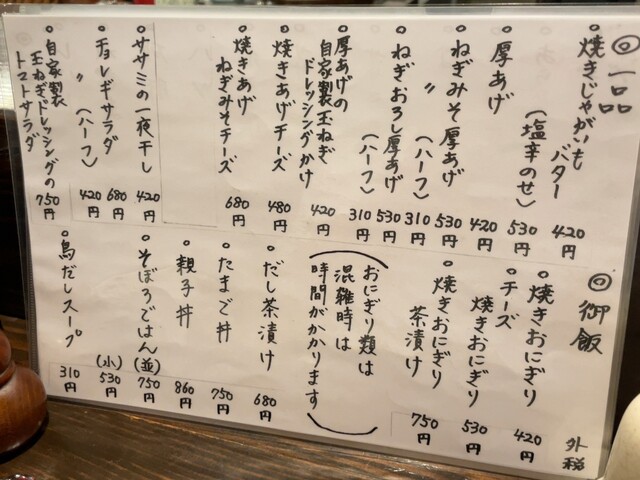 ◎一品
○焼きじゃがいも
バター 420円
（塩辛のせ） 530円
○厚あげ 420円
○ねぎみそ厚あげ 530円
〃（ハーフ） 310円
○ねぎおろし厚あげ 530円
（ハーフ） 310円
○厚あげの
自家製玉ねぎ
ドレッシングかけ 420円
○焼きあげチーズ 480円
○焼きあげ
ねぎみそチーズ 680円
○ササミの一夜干し 420円
○チョレギサラダ 680円
〃（ハーフ） 420円
○自家製
玉ねぎドレッシングの
トマトサラダ 750円
◎御飯
外税
○焼きおにぎり 420円
○チーズ
焼きおにぎり 530円
○焼きおにぎり
茶漬け 750円
（おにぎり類は
混雑時は
時間がかかります）
○だし茶漬け 680円
○たまご丼 750円
○親子丼 860円
○そぼろごはん（並） 750円
（小） 530円
○鳥だしスープ 310円